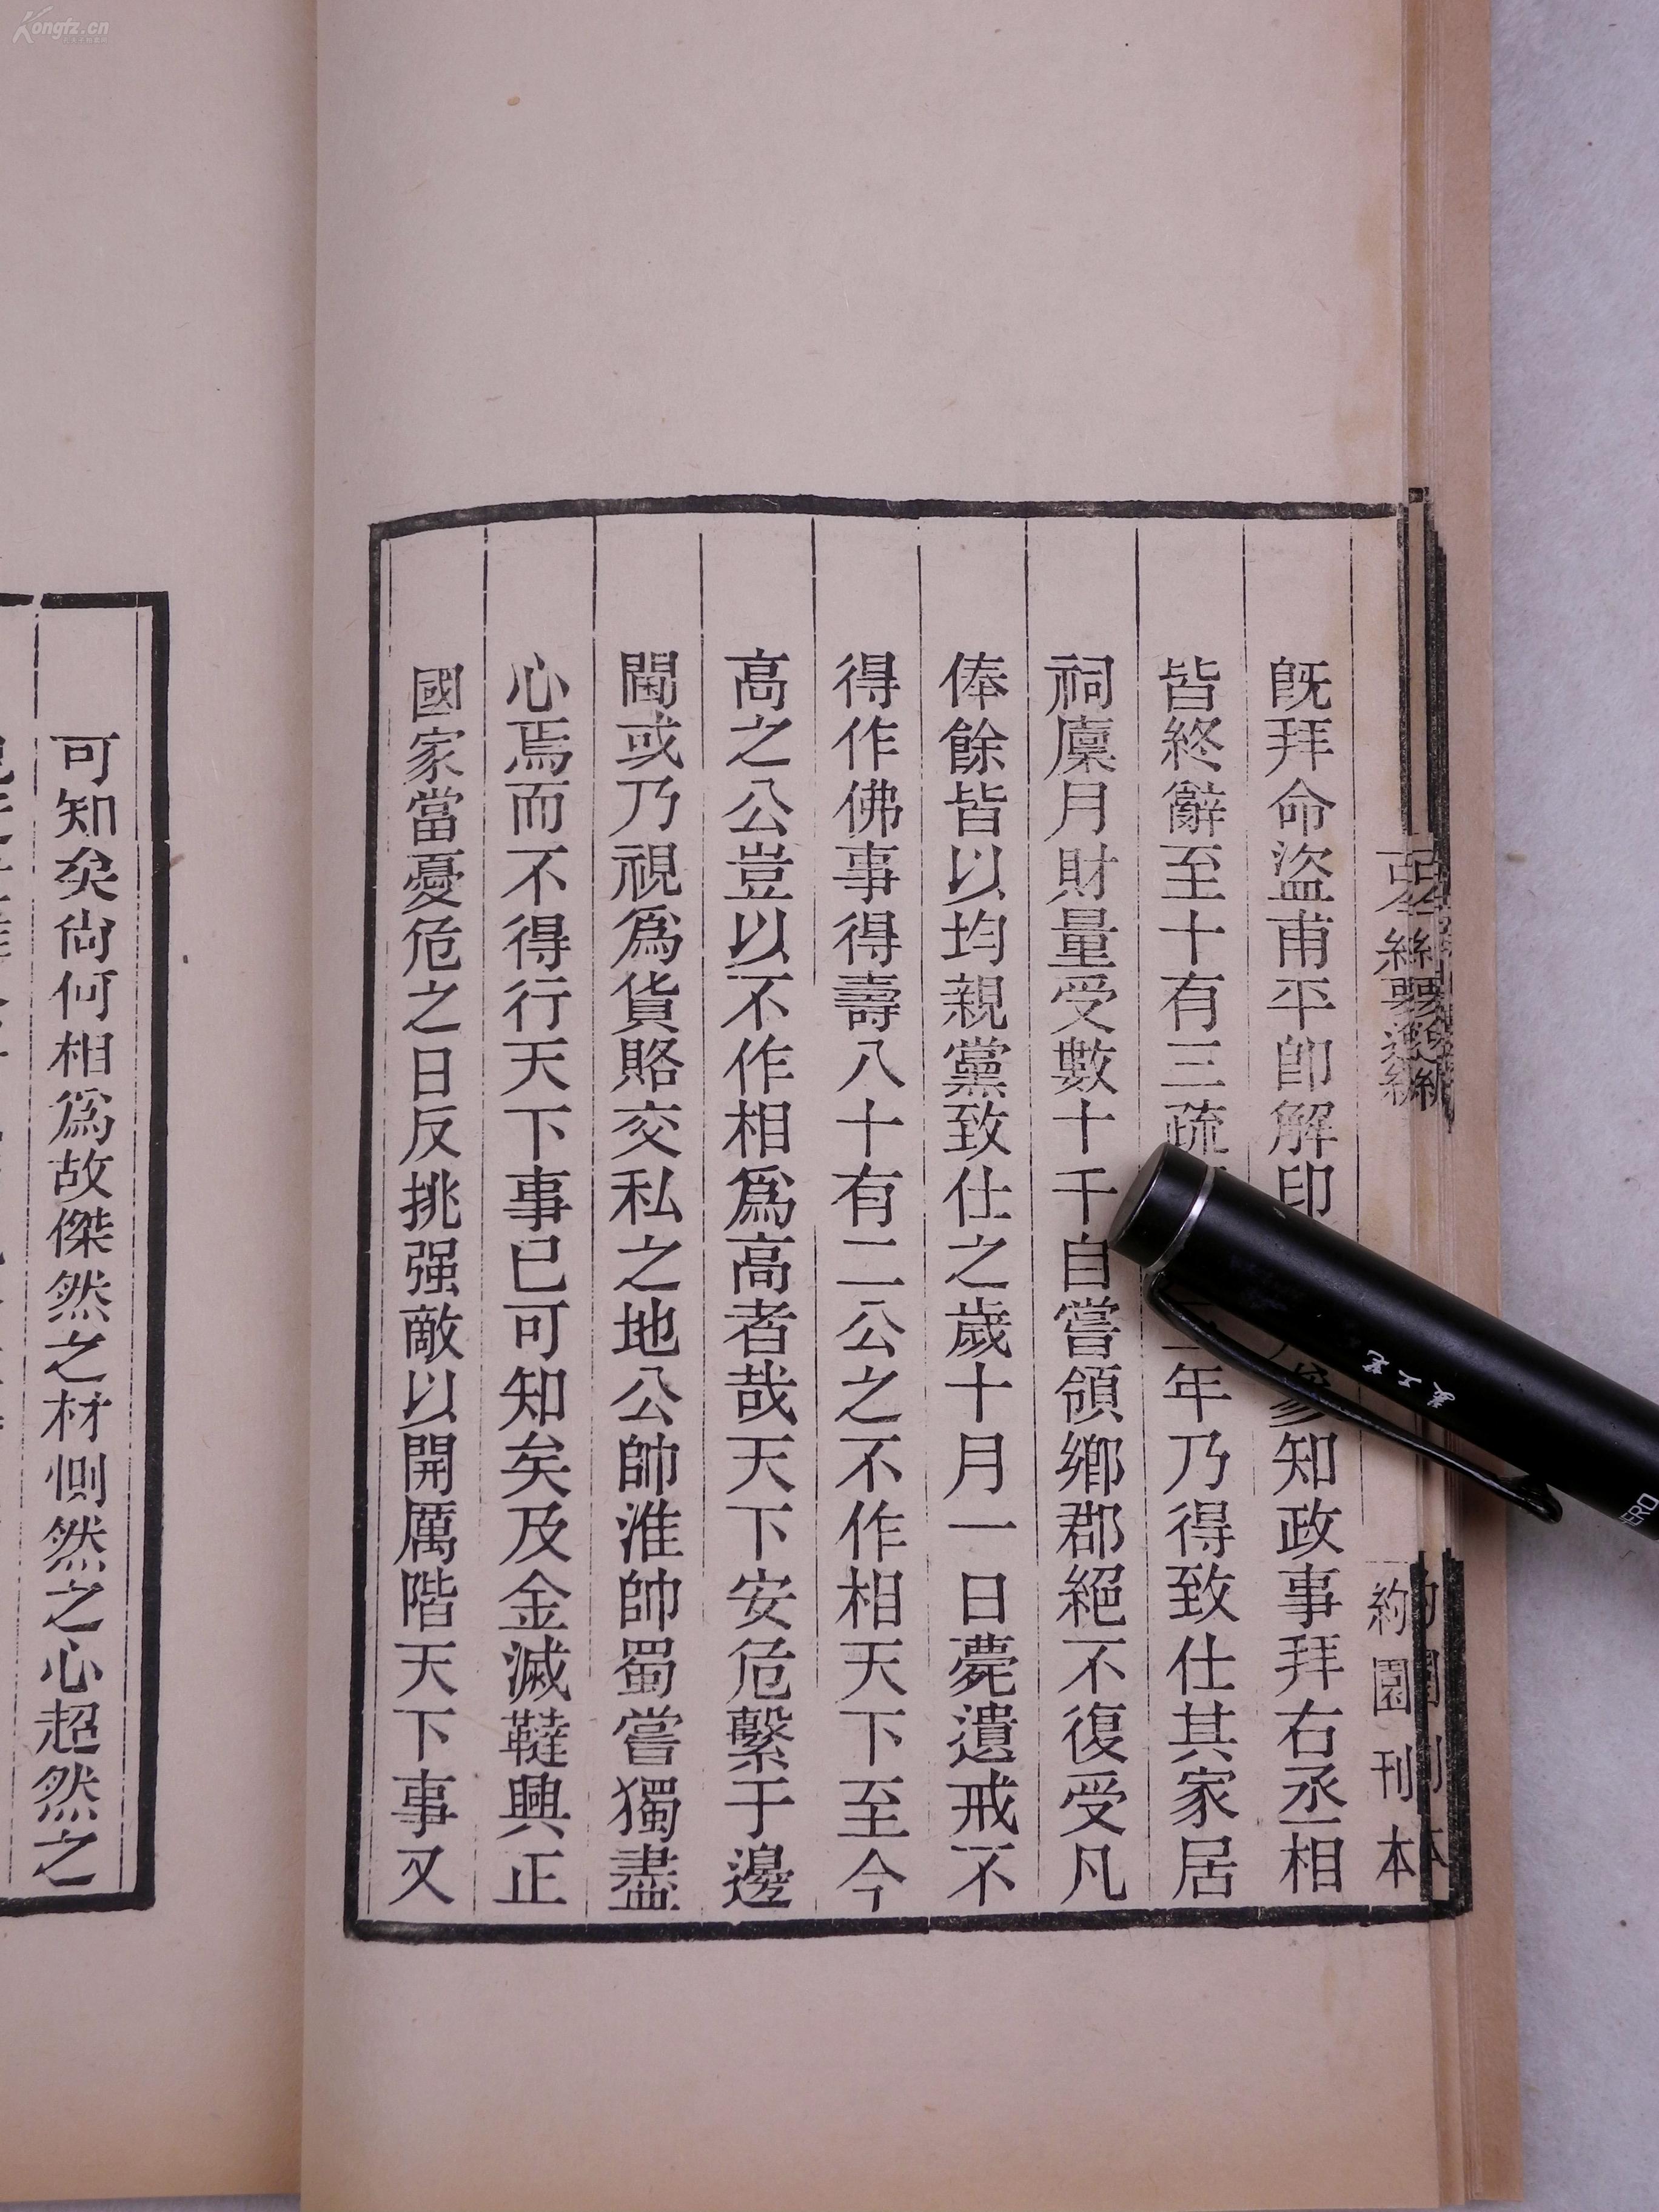 既拜命盜甫平卽解印參知政事拜右丞相
皆終辭至十有三疏年乃得致仕其家居
祠廩月財量受數十千自嘗領鄉郡絕不復受凡
俸餘皆以均親黨致仕之歲十月一日薨遺戒不
得作佛事得壽八十有二公之不作相天下至今
高之公豈以不作相爲高者哉天下安危繫于邊
閫或乃視爲貨賂交私之地公帥淮帥蜀嘗獨盡
心焉而不得行天下事已可知矣及金滅韃興正
國家當憂危之日反挑强敵以開厲階天下事又
可知矣尙何相爲故傑然之材惻然之心超然之
約園刊本
Kongfz.cn
HERO